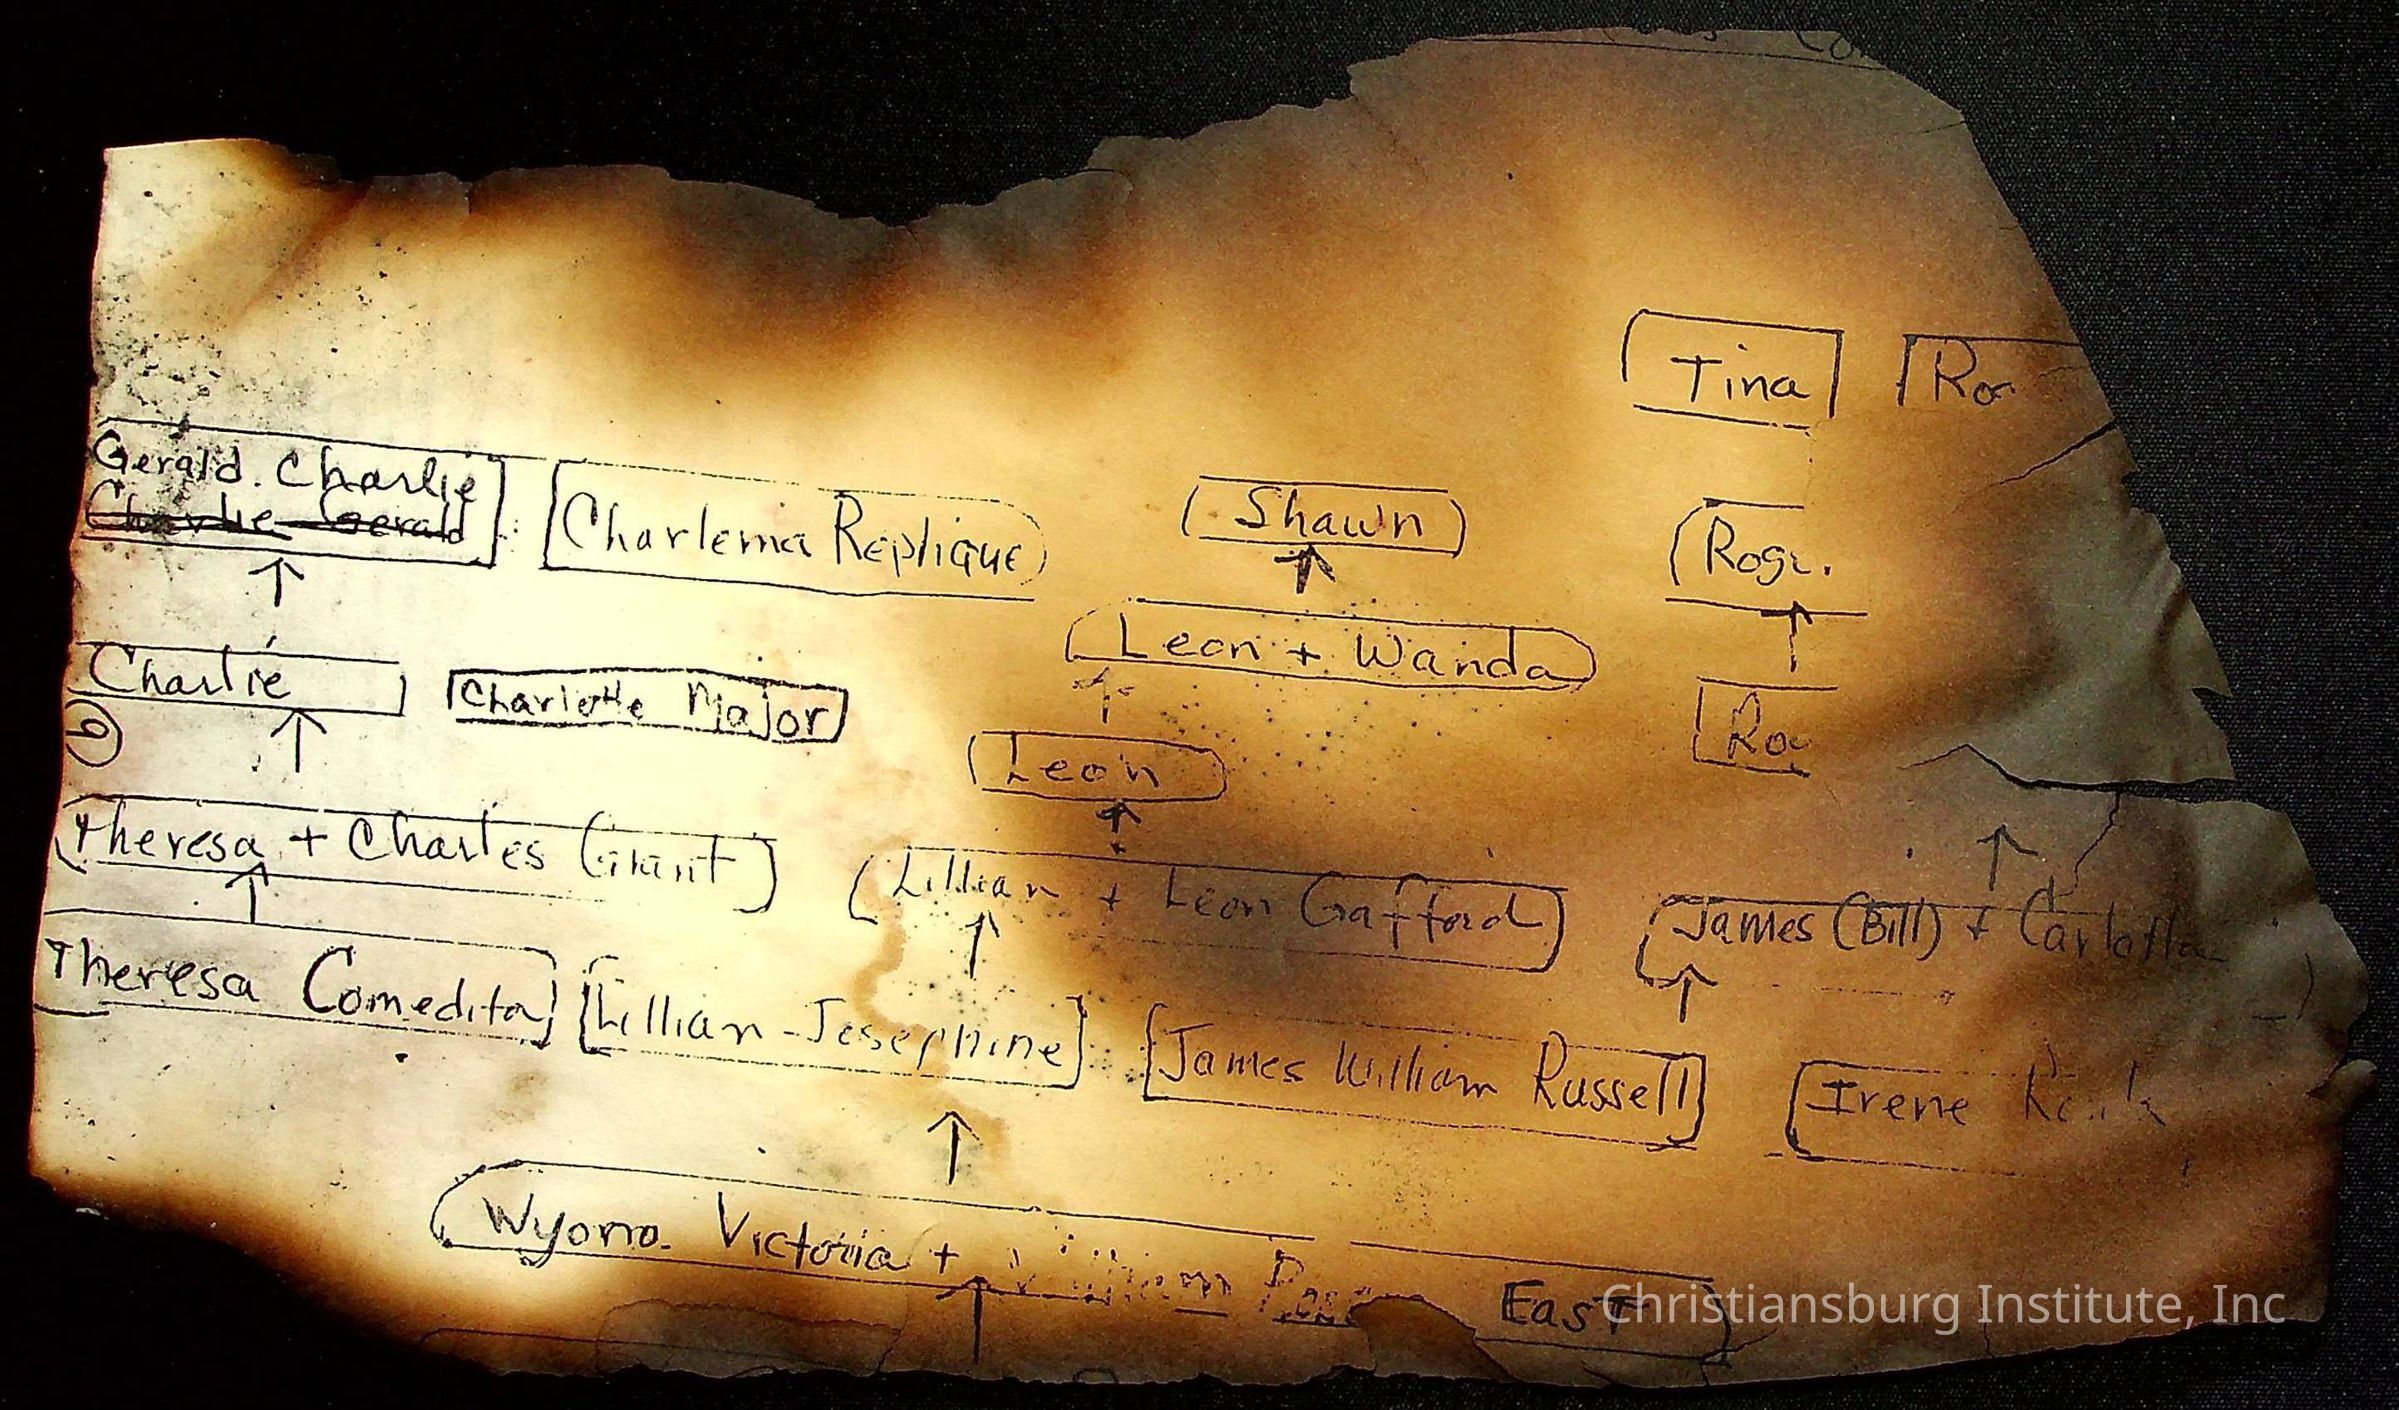 Tina
Gerald. Charlie
Charlie Gerald
Charlema Replique
Shawn
Leon + Wanda
Charlie
Charlotte Major
Leon
Theresa + Charles Grant
Lillian + Leon Gafford
James (Bill) + Carlotta
Theresa Comedita
Lillian - Josephine
James William Russell
Irene
Wyona Victoria + William
East
Christiansburg Institute, Inc